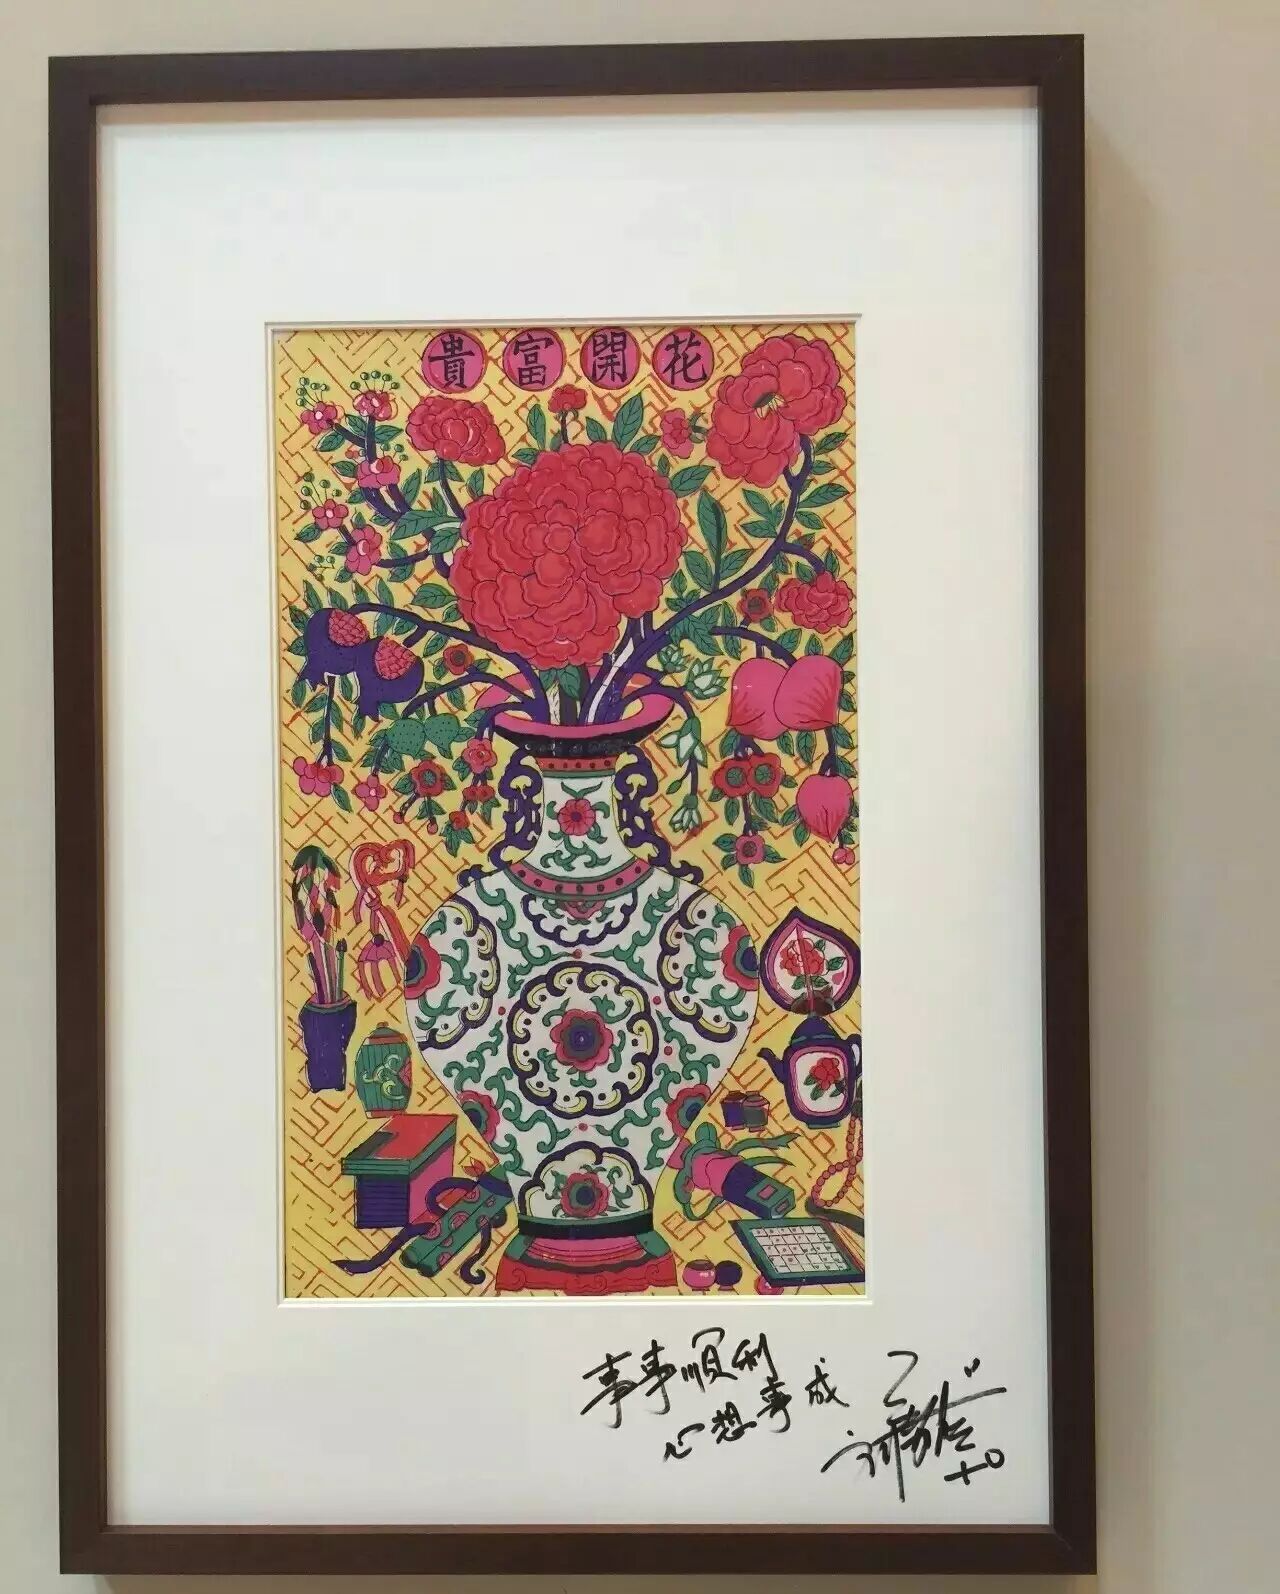 花開富貴
事事順利
心想事成